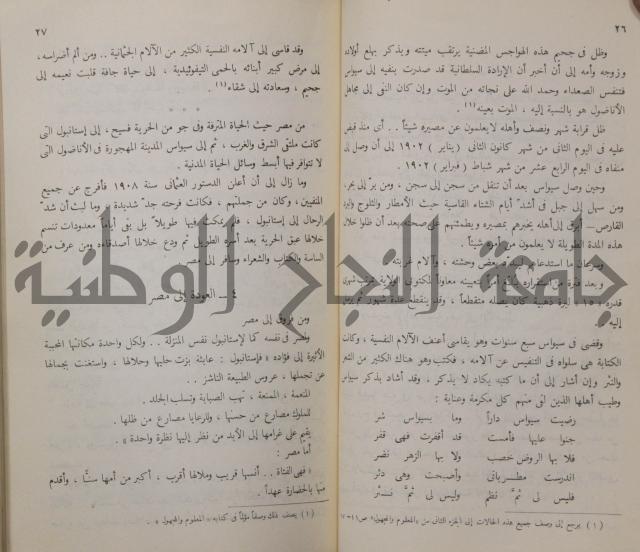 ٢٦
وظل فى جحيم هذه الهواجس المضنية يرتقب ميتته ويذكر بهلع أولاده
وزوجه وأمه إلى أن أخبر أن الإرادة السلطانية قد صدرت بنفيه إلى سيواس
فتنفس الصعداء وحمد الله على نجاته من الموت وإن كان النفى إلى مجاهل
الأناضول هو بالنسبة إليه ، الموت بعينه (١) .
ظل قرابة شهر ونصف وأهله لا يعلمون عن مصيره شيئاً . . أى منذ قبض
عليه فى اليوم الثانى من شهر كانون الثانى ( يناير ) ١٩٠٢ إلى أن وصل إلى
منفاه فى اليوم الرابع عشر من شهر شباط ( فبراير ) ١٩٠٢ .
وحين وصل سيواس بعد أن تنقل من سجن إلى سجن ، ومن بر إلى بحر
ومن سهل إلى جبل فى أشد أيام الشتاء القاسية حيث الأمطار والثلوج والبرد
القارص أبرق إلى أهله يخبرهم بمصيره ويطمئنهم على صحته بعد أن ظلوا خلال
هذه المدة الطويلة لا يعلمون من أمره شيئاً .
وسرعان ما استدعاهم إليه وحشته ، وآلام غربته
وبعد فترة من استقراره بتعيينه معاوناً لمكتوبى الولاية بمرتب شهرى
قدره ليرة ذهبية كان يصله متقطعاً ، وقد ينقطع عدة شهور ثم
إليه
وقضى فى سيواس سبع سنوات وهو يقاسى أعنف الآلام النفسية ، وكانت
الكتابة هى سلواه فى التنفيس عن آلامه ، فكتب وهو هناك الكثير من الشعر
والنثر وإن أشار إلى أن ما كتبه يكاد لا يذكر ، وقد أشاد بذكر سيواس
وطيب أهلها الذين لقى منهم كل مكرمة وعناية :
رضيت سيواس داراً وما بسيواس شر
جنوا عليها فأمست قد أقفرت فهى قفر
فلا بها الروض خصب ولا بها الزهر نضر
اندرست مطرباتى وأصبحت وهى دثر
فليس لى ثَمَّ نظم وليس لى ثَمَّ نثر
(١) يرجع إلى وصف جميع هذه الحالات إلى الجزء الثانى من « المعلوم والمجهول » ص ٤١ –
٢٧
وقد قاسى إلى آلامه النفسية الكثير من الآلام الجثمانية . . ومن ألم أضراسه ،
إلى مرض كبير أبنائه بالحمى التيفوئيدية ، إلى حياة جافة قلبت نعيمه إلى
جحيم ، وسعادته إلى شقاء (١) .
* * *
من مصر حيث الحياة المترفة وفى جو من الحرية فسيح ، إلى إستانبول التى
كانت ملتقى الشرق والغرب ، ثم إلى سيواس المدينة المهجورة فى الأناضول التى
لا تتوافر فيها أبسط وسائل الحياة المدنية .
وما زال إلى أن أعلن الدستور العثمانى سنة ١٩٠٨ فأفرج عن جميع
المنفيين ، وكان من جملتهم ، فكانت فرحته جد شديدة ، وما لبث أن شد
الرحال إلى إستانبول ، فلم يمكث فيها طويلاً بل بقى أياماً معدودات تنسم
خلالها عبق الحرية بعد أسره الطويل ثم ودع خلالها أصدقاءه ومن عرف من
الساسة والكتاب والشعراء وسافر إلى مصر .
٤ – العودة إلى مصر
ومن فروق إلى مصر
ولمصر فى نفسه كما لإستانبول نفس المنزلة . . ولكل واحدة مكانتها المحببة
الأثيرة إلى فؤاده « فإستانبول : عابثة بزت حليها وحلالها ، واستغنت بجمالها
عن تجملها ، عروس الطبيعة الناشز . .
المنعمة ، الممنعة ، تهب الصبابة وتسلب الجلد .
للملوك مصارع من حسنها ، وللرعايا مصارع من ظلها .
يقيم على غرامها إلى الأبد من نظر إليها نظرة واحدة » .
أما مصر :
« فهى الفتاة . . أنسها قريب وملالها أقرب ، أكبر من أمها سنًّا ، وأقدم
منها بالحضارة عهداً .
(١) يصف ذلك وصفاً مؤثراً فى كتابه « المعلوم والمجهول » .
جامعة النجاح الوطنية